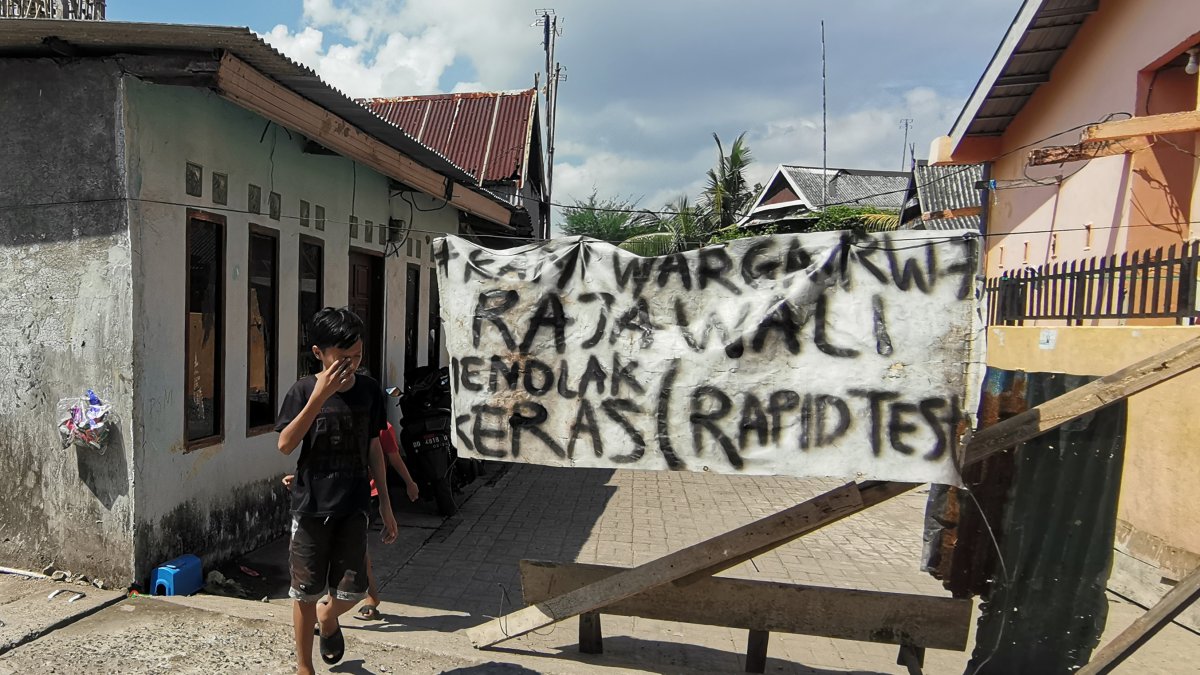 KAMI WARGA RW 7
RAJAWALI
MENOLAK
KERAS (RAPID TEST